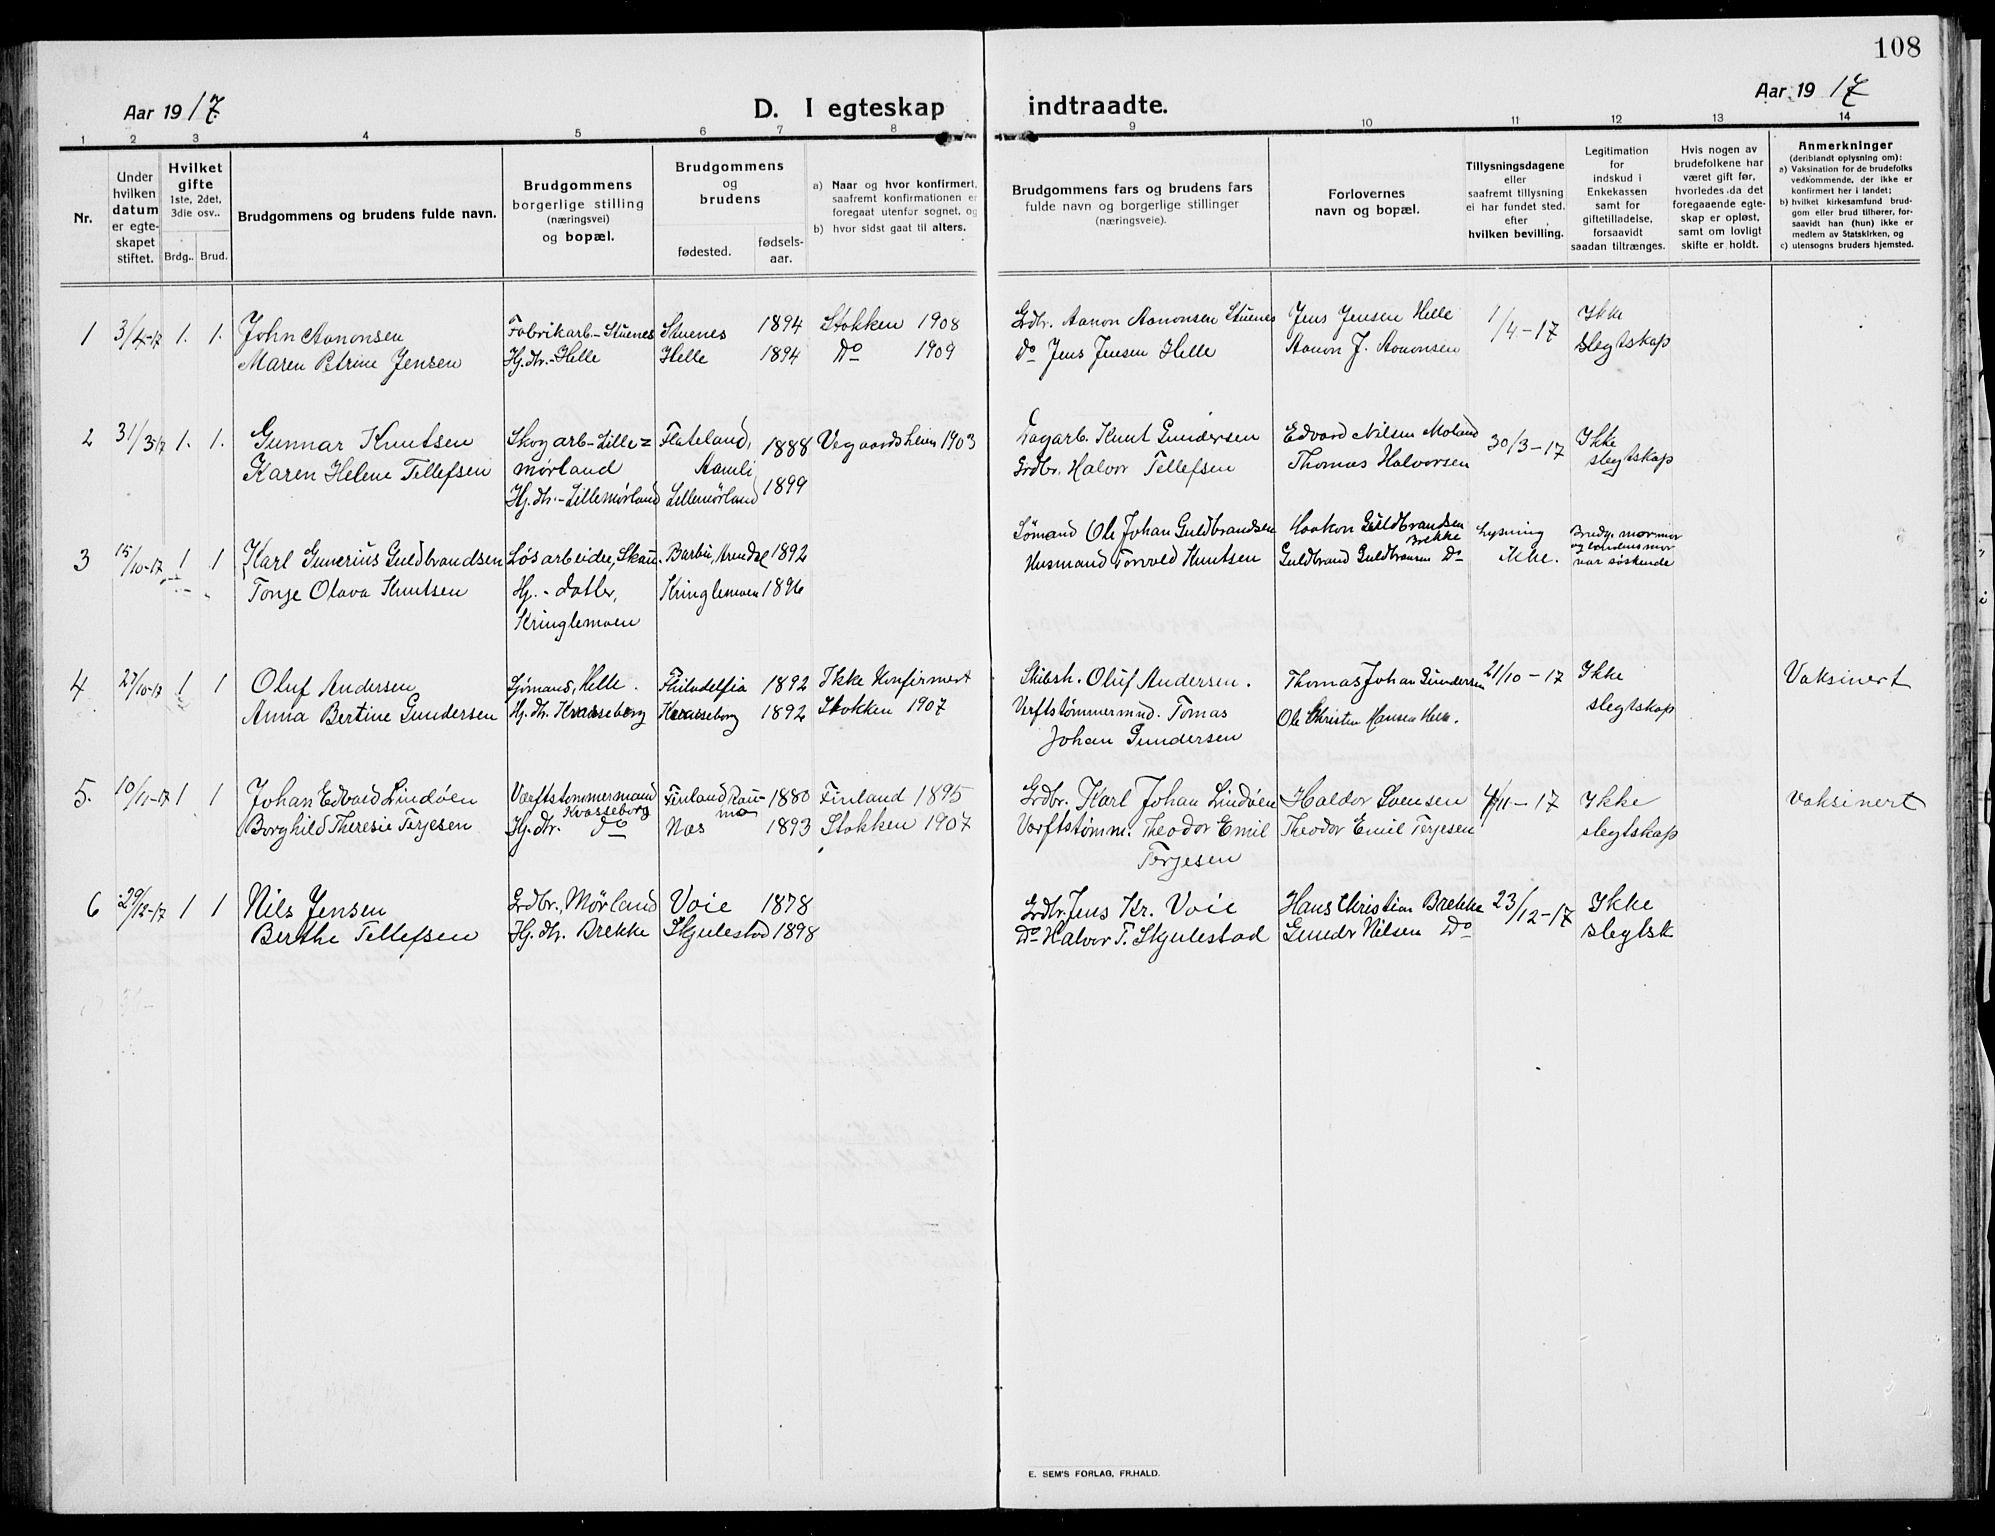 108
Aar 1917
D. I egteskap indtraadte.
Aar 1917
1 2 3 4 5 6 7 8 9 10 11 12 13 14
Nr.
Under hvilken datum er egte- skapet stiftet.
Hvilket gifte 1ste, 2det, 3die osv..
Brdg.. Brud.
Brudgommens og brudens fulde navn.
Brudgommens borgerlige stilling (næringsvei) og bopæl.
Brudgommens og brudens
fødested.
fødsels- aar.
a) Naar og hvor konfirmert, saafremt konfirmationen er foregaat utenfor sognet, og
b) hvor sidst gaat til alters.
Brudgommens fars og brudens fars fulde navn og borgerlige stillinger (næringsveie).
Forlovernes navn og bopæl.
Tillysningsdagene eller saafremt tillysning ei har fundet sted. efter hvilken bevilling.
Legitimation for indskud i Enkekassen samt for giftetilladelse, forsaavidt saadan tiltrænges.
Hvis nogen av brudefolkene har været gift før, hvorledes da det foregaaende egte- skap er opløst, samt om lovligt skifte er holdt.
Anmerkninger (deriblandt oplysning om):
a) Vaksination for de brudefolks vedkommende, der ikke er konfirmert her i landet;
b) hvilket kirkesamfund brud- gom eller brud tilhører, for- saavidt han (hun) ikke er medlem av Statskirken, og
c) utensogns bruders hjemsted.
1 3/4-17 1. 1. John Aanonsen Fabrikarb-Stuenes Stuenes 1894 Stokken 1908 Grdbr. Aanon Aanonsen Stuenes Jens Jensen Helle 1/4-17 Ikke
Maren Petrine Jensen Hj.dtr.-Helle Helle 1894 Do 1909 Do Jens Jensen Helle Aanon J. Aanonsen slegtskap
2 31/3 17 1. 1. Gunnar Knutsen Skogarb-Lille= Flateland, 1888 Vegaardsheien 1903 Dagarb. Knut Gundersen Edvard Nilsen Moland 30/3-17 Ikke
Karen Helene Tellefsen mørland Aamli Grdbr. Halvor Tellefsen Thomas Halvorsen slegtskap
Hj.dtr.-Lillemørland Lillemørland 1899
3 15/10-17 1 1 Karl Gunerius Guldbrandsen Løsarbeider, Skau. Barbu, Arendal 1892 Sømand Ole Johan Guldbrandsen Haakon Guldbrandsen Brekke Lysning Brudg. mormor
Tonje Olava Knutsen Hj.-datter, Kringlemoen 1896 Husmand Torvald Knutsen Guldbrand Guldbransen Do Ikke. og brudens mor
Kringlemoen var søskende
4 27/10-17 1 1 Oluf Andersen Sjømand, Helle. Philadelfia 1892 Ikke Konfirmert Skibsh. Oluf Andersen. Thomas Johan Gundersen 21/10-17 Ikke Vaksinert
Anna Bertine Gundersen Hj.dtr. Kvasseborg Kvasseborg 1892 Stokken 1907 Verftstømmermnd. Tomas Ole Christen Hansen Helle. slegtskap
Johan Gundersen
5. 10/11-17 1 1 Johan Edvard Lindøen Værftstømmermand Finland Rau- 1880 Finland 1895 Grdbr. Karl Johan Lindøen Haldor Svensen 4/11-17 Ikke Vaksinert
Kvasseborg mo
Borghild Theresie Terjesen Hj.dtr. do Næs 1893 Stokken 1907 Værftstømm. Theodor Emil Theodor Emil Terjesen slegtskap
Terjesen
6 29/12-17 1 1 Nils Jensen Grdbr., Mørland Voie 1878 Grdbr. Jens Kr. Voie Hans Christian Brekke 23/12-17 Ikke
Berthe Tellefsen Hj.dtr. Brekke Skjulestad 1898 Do Halvor T. Skjulestad Gunder Nilsen Do slegtsk
E. SEM'S FORLAG, FR.HALD.